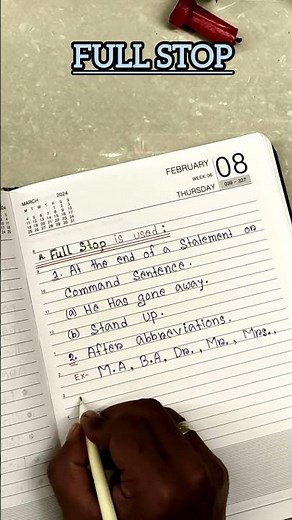 FULL STOP
MARCH 2024
FEBRUARY 08
WEEK 06
THURSDAY 039 - 327
A Full Stop is used:
1. At the end of a Statement or
Command Sentence.
(a) He Has gone away.
(b) Stand up.
2. After abbreviations.
Ex- M.A, B.A, Dr., Mr., Mrs..